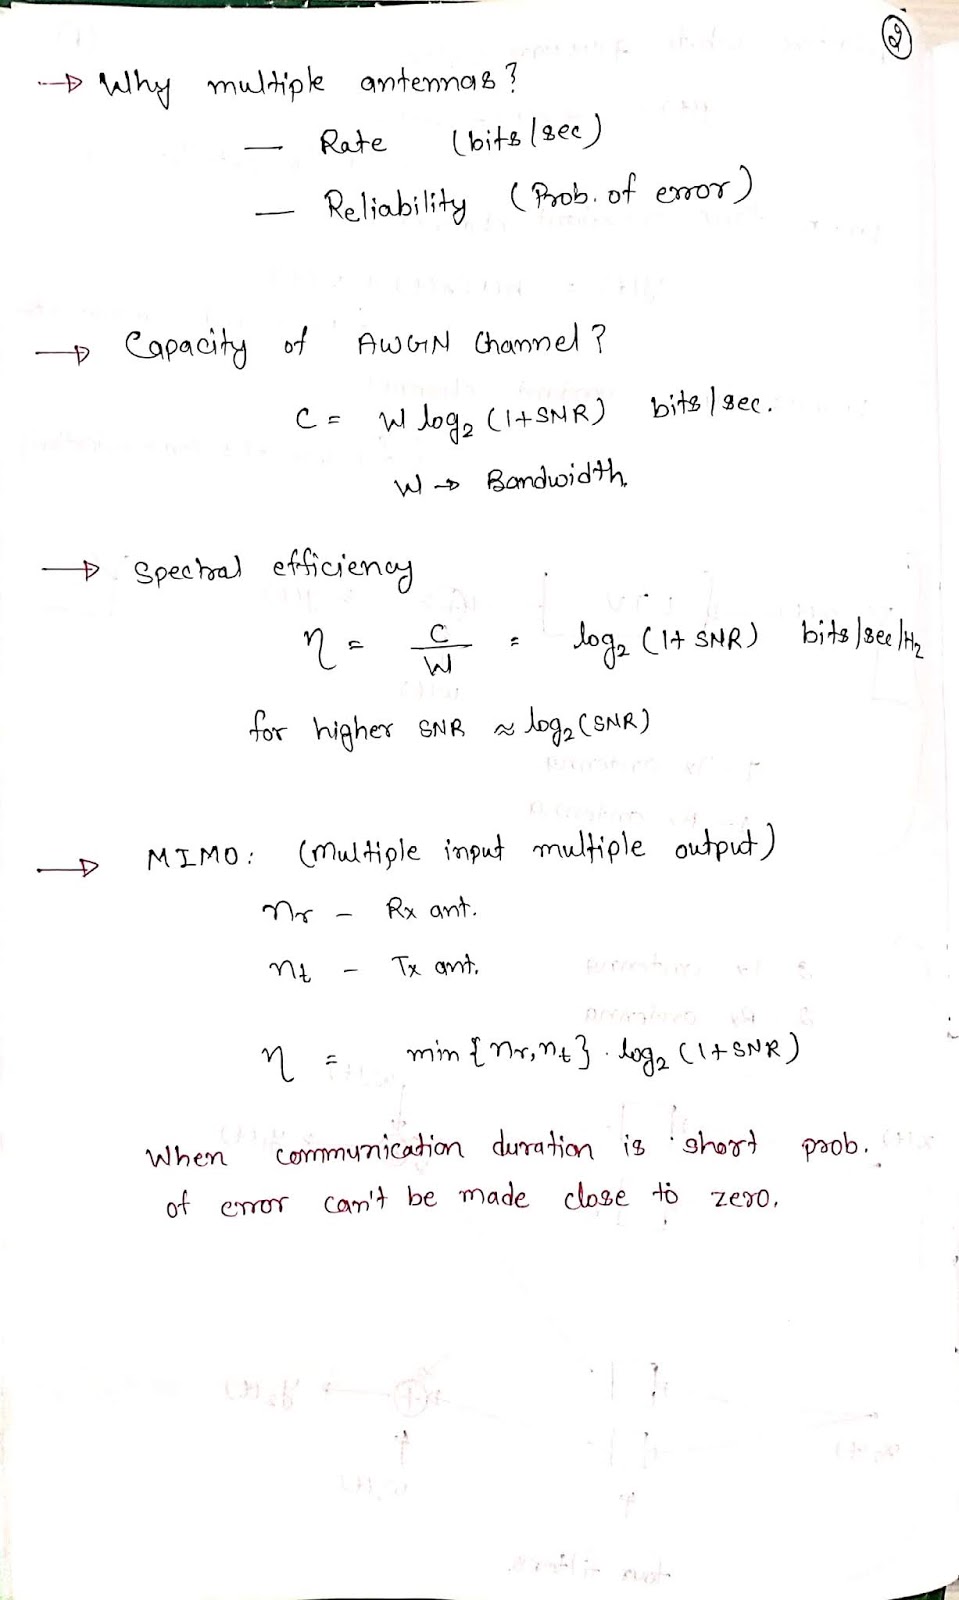 2
→ Why multiple antennas?
— Rate (bits/sec)
— Reliability (Prob. of error)
→ Capacity of AWGN Channel?
C = W log₂ (1+SNR) bits/sec.
W → Bandwidth.
→ Spectral efficiency
η = C/W = log₂ (1+ SNR) bits/sec/Hz
for higher SNR ≈ log₂(SNR)
→ MIMO: (Multiple input multiple output)
nr – Rx ant.
nt – Tx ant.
η = min {nr, nt} . log₂ (1+SNR)
When communication duration is short prob.
of error can't be made close to zero.